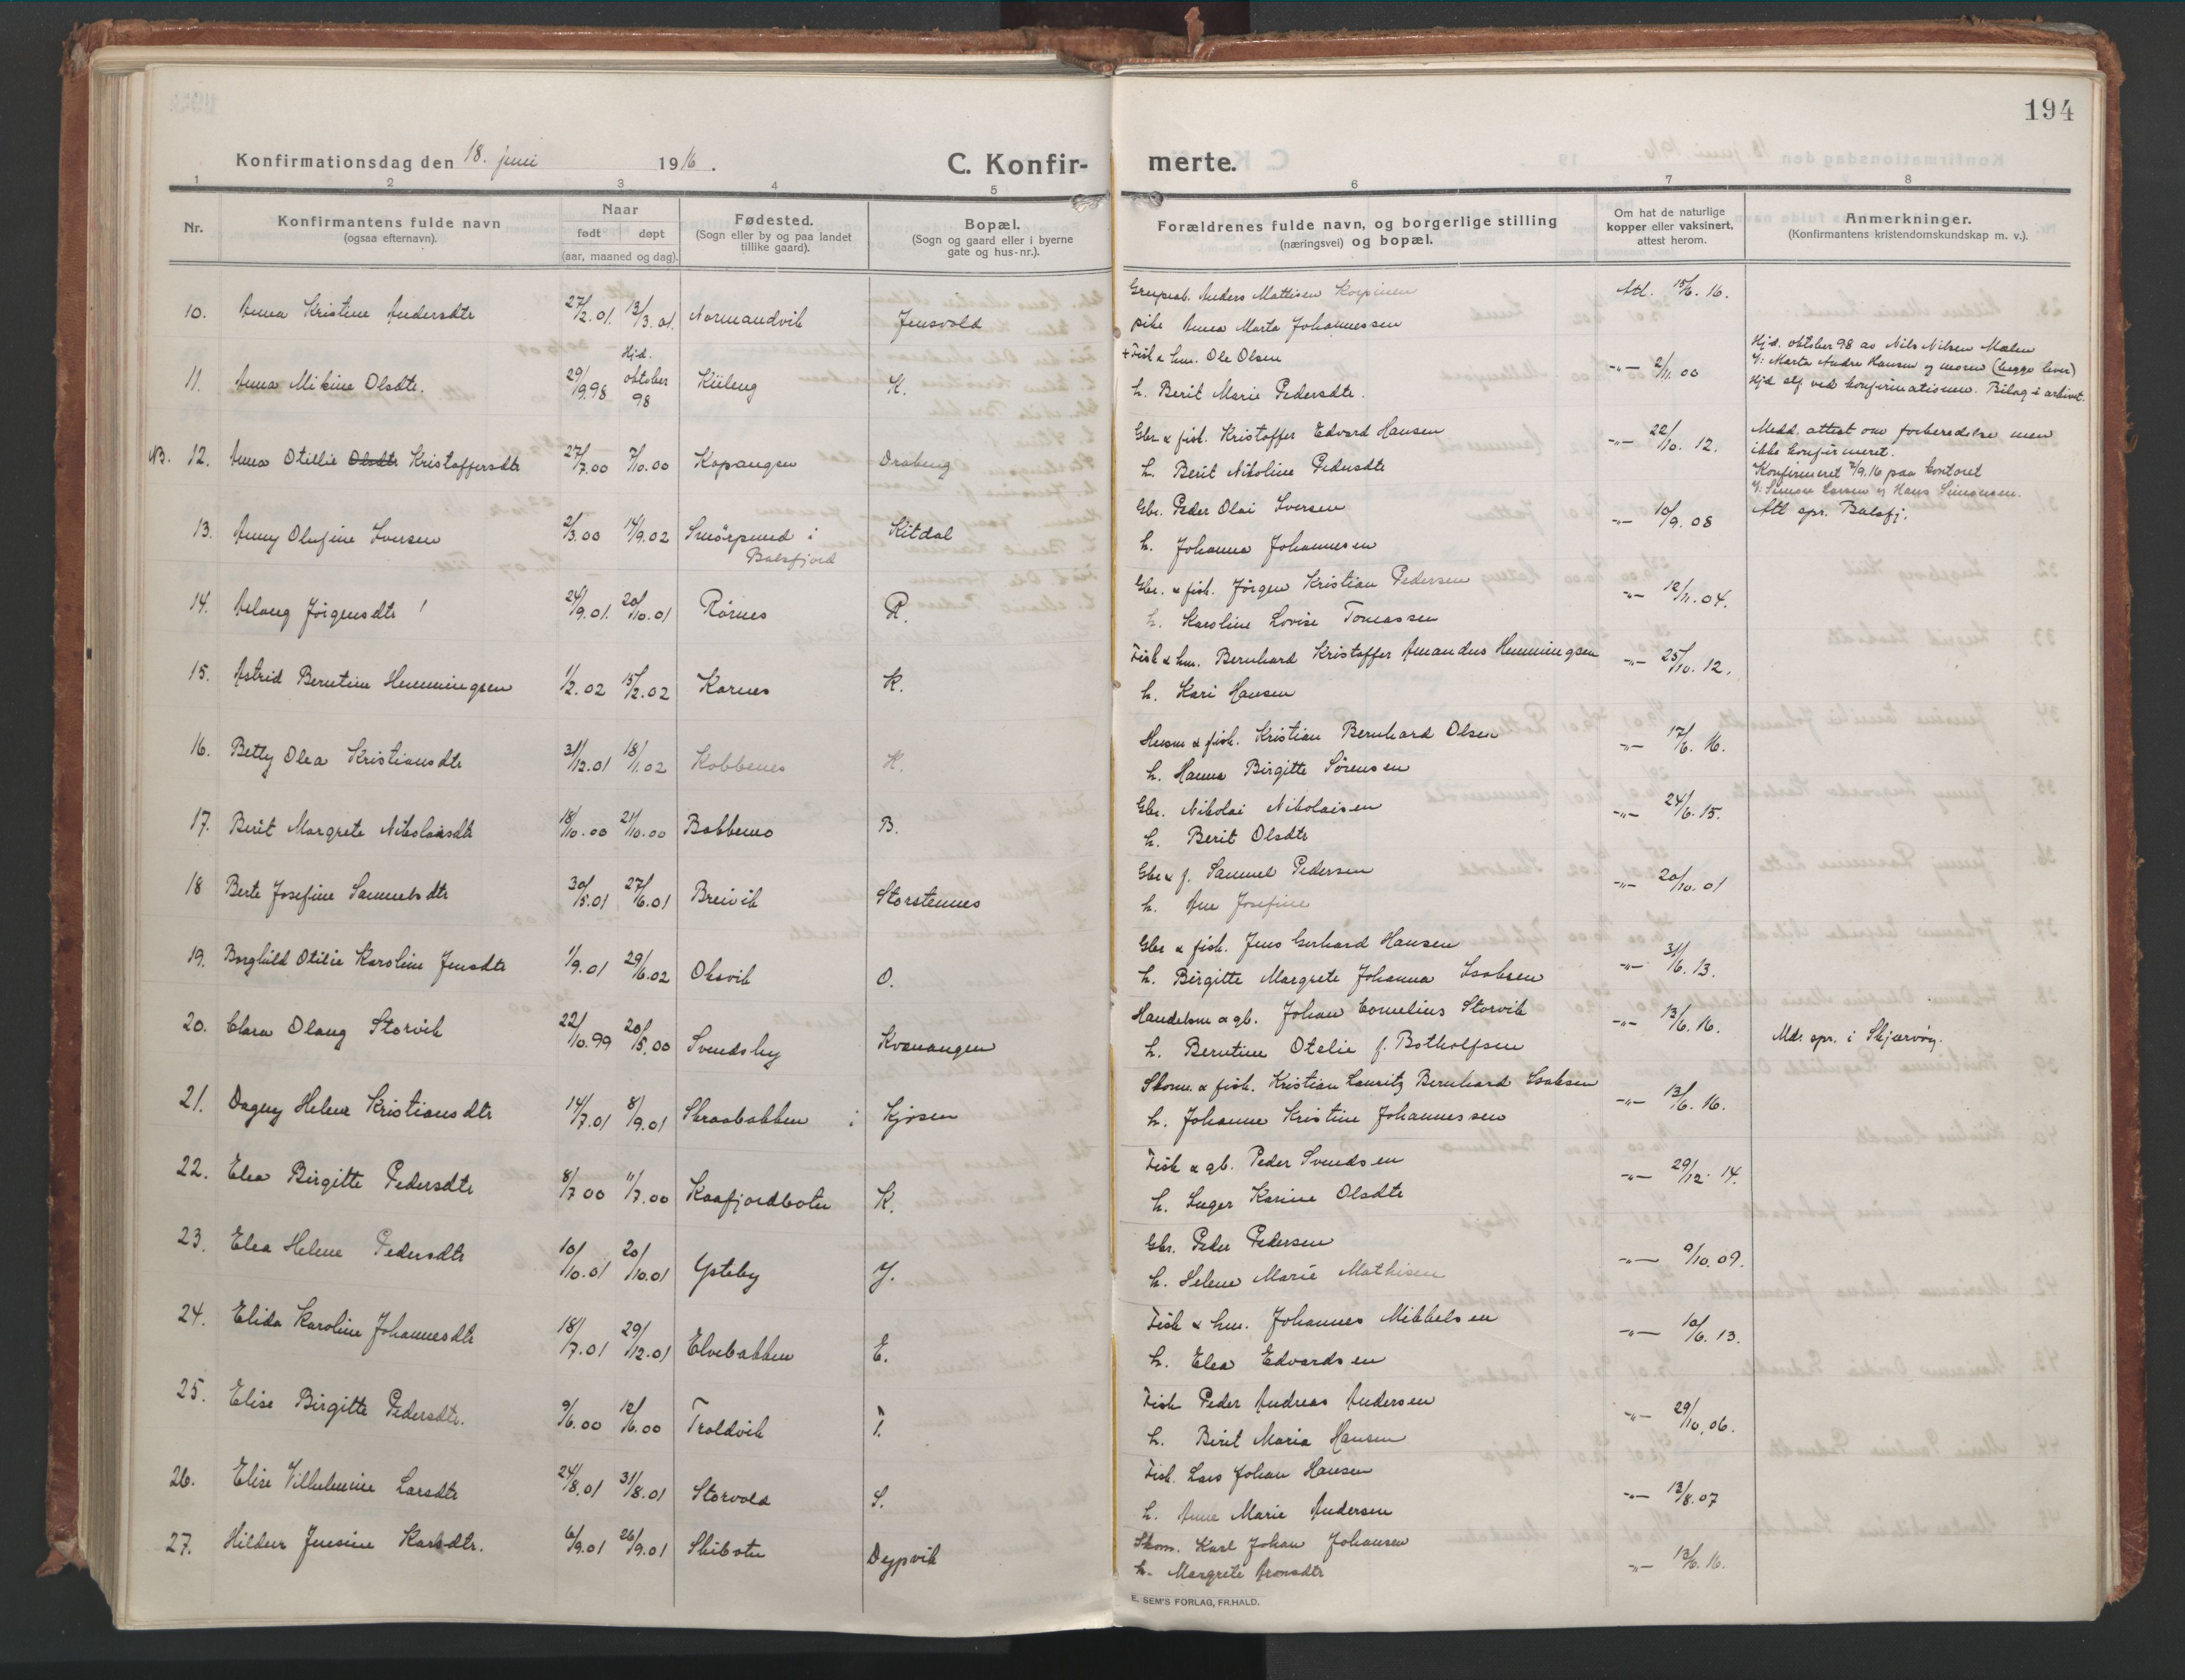 194
Konfirmationsdag den 18. juni 1916.
C. Konfir- merte.
1 2 3 4 5 6 7 8
Nr.
Konfirmantens fulde navn
(ogsaa efternavn).
Naar
født døpt
(aar, maaned og dag).
Fødested.
(Sogn eller by og paa landet
tillike gaard).
Bopæl.
(Sogn og gaard eller i byerne
gate og hus-nr.).
Forældrenes fulde navn, og borgerlige stilling
(næringsvei) og bopæl.
Om hat de naturlige
kopper eller vaksinert,
attest herom.
Anmerkninger.
(Konfirmantens kristendomskundskap m. v.).
10. Anna Kristine Andersdtr 27/2.01. 13/3.01. Normandvik Jensvold
Anders Mattisen Korpinen
pike Anna Marta Johannessen
Att. 15/6. 16.
11. Anna Mikine Olsdtr. 29/9.98 Hjd. oktober 98 Kileng K.
+ Fisk & hm. Ole Olsen
h. Berit Marie Pedersdtr.
-"- 2/11. 00
Hjd. oktober 98 av Nils Nilsen Mælen
V: Marta Andre Hansen og moren (begge lever)
Hjd stf ved konfirmationen. Bilag i arkivet.
NB. 12. Anna Otilie Olsdtr Kristoffersdtr 27/7.00 7/10.00 Kopangen Drabeng
Gbr. & fisk. Kristoffer Edvard Hansen
h. Berit Nikoline Pedersdtr
-"- 22/10. 12.
Medd. attest om forberedelse men
ikke konfirmeret.
Konfirmeret 3/9.16 paa kontoret
V: Simon Larsen og Hans Simonsen.
13. Anny Olufine Iversen 2/3.00 14/9.02 Smörpund i Kitdal
Balsfjord
Gbr. Peder Olai Iversen
h. Johanna Johannesen
-"- 10/9. 08
Atl spr. Balsfj.
14. Aslaug Jørgensdtr 24/9.01. 20/10.01 Rörnes R.
Gbr. & fisk. Jörgen Kristian Pedersen
h. Karoline Lovise Tomassen
-"- 12/11. 04.
15. Astrid Berntine Hemmingsen 1/2.02 15/2.02 Karnes K.
Fisk & hm. Bernhard Kristoffer Amandus Hemmingsen
h. Kari Hansen
-"- 25/10. 12.
16. Betty Olea Kristiansdtr 31/12.01 18/1.02 Kobbenes K.
Husm & fisk. Kristian Bernhard Olsen
h. Hanna Birgitte Sørensen
-"- 17/6. 16.
17. Berit Margrete Nikolaisdtr 18/10.00 21/10.00 Bakkemo B.
Gbr. Nikolai Nikolaisen
h. Berit Olsdtr
-"- 24/6. 15.
18 Berte Josefine Samuelsdtr 30/5.01 27/6.01 Breivik Storstennes
Gbr & f. Samuel Pedersen
h. Ane Josefine
-"- 20/10. 01
19. Borghild Otilie Karoline Jensdtr 1/9.01 29/6.02 Oksvik O.
Gbr & fisk. Jens Gerhard Hansen
h. Birgitte Margrete Johanna Isaksen
-"- 31/6. 13.
20. Clara Olaug Storvik 22/10.99 20/5.00 Svendsby Kvænangen
Handelsm & gb. Johan Cornelius Storvik
h. Berntine Otelie f. Botholfsen
-"- 13/6. 16.
Md. spr. i Skjærvøy.
21. Dagny Helene Kristiansdtr 14/7.01 8/9.01 Skraabakken i Kjosen
Skom. & fisk. Kristian Lauritz Bernhard Isaksen
h. Johanne Kristine Johannessen
-"- 13/6. 16.
22. Elea Birgitte Pedersdtr 8/7 00 11/7.00 Kaafjordboten K.
Fisk & gb. Peder Svendsen
h. Inger Karine Olsdtr
-"- 29/12. 14.
23. Elea Helene Pedersdtr 10/10.01 20/10.01 Ysteby Y.
Gbr. Peder Pedersen
h. Helene Marie Mathisen
-"- 9/10. 09.
24. Elida Karoline Johannesdtr 18/7.01 29/12.01 Elvebakken E.
Fisk & hm. Johannes Mikkelsen
h. Elea Edvardsen
-"- 10/6. 13.
25. Elise Birgitte Pedersdtr. 9/6.00 12/6.00 Troldvik T.
Fisk Peder Andreas Andersen
h. Berit Maria Hansen
-"- 29/10. 06.
26. Elise Vilhelmine Larsdtr 24/8.01 31/8.01 Storvold S.
Fisk. Lars Johan Hansen
h. Anne Marie Andersen
-"- 13/8. 07
27. Hildur Jensine Karlsdtr. 6/9.01 26/9.01 Skiboten Dypvik
Skom. Karl Johan Johansen
h. Margrete Aronsdtr
-"- 13/6. 16.
E. SEM'S FORLAG, FR.HALD.